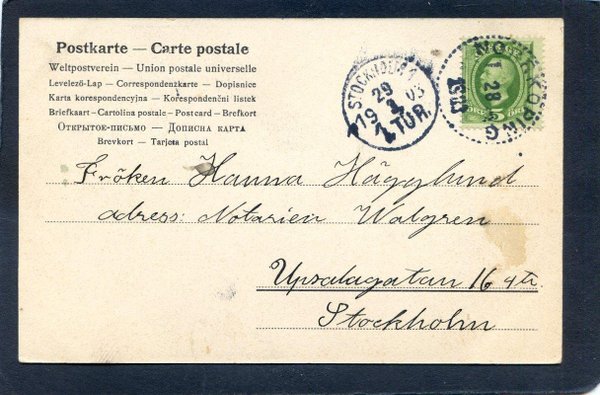 Postkarte — Carte postale
Weltpostverein — Union postale universelle
Levelező-Lap — Correspondenzkarte — Dopisnice
Karta korespondencyjna — Korespondenční lístek
Briefkaart — Cartolina postale — Postcard — Brefkort
ОТКРЫТОЕ-ПИСЬМО — ДОПИСНА КАРТА
Brevkort — Tarjeta postal
STOCKHOLM 1
29
1
19 03
1. TUR.
28
1903
Fröken Hanna Hägglund
adress: Notarien Walgren
Upsalagatan 16 4 tr
Stockholm